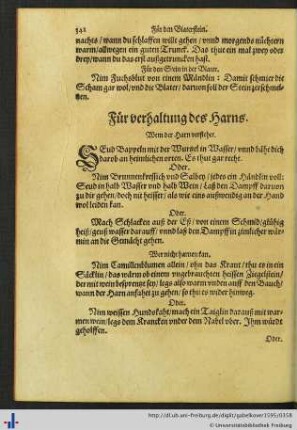 342 Für den Blaterstein.
naches / wann du schlaffen wilt gehen / vnnd morgends nüchtern
warm / allwegen ein guten Trunck. Das thut ein mal zwey oder
drey / wann du das erst außgetruncken hast.
Für den Stein in der Blater.
Nim Fuchsblut von einem Mändlin: Damit schmier die
Scham gar wol / vnd die Blater / darvon soll der Stein zerschmel-
tzen.
Für verhaltung des Harns.
Wem der Harn versteht.
SEud Bappeln mit der Wurtzel in Wasser / vnnd bähe dich
darob an heimlichen orten. Es thut gar recht.
Oder.
Nim Brunnenkressich vnd Salbey / jedes ein Händlin voll:
Seud in halb Wasser vnd halb Wein / Laß den Dampff darvon
zu dir gehen / doch nit heisser / als wie eins außwendig an der Hand
wol leiden kan.
Oder.
Mach Schlacken auß der Eß / von einem Schmid / glüig
heiß / geuß wasser darauff / vnd laß den Dampff in zimlicher wär-
min an die Gemächt gehen.
Wer nich harnen kan.
Nim Camillenblumen allein / ohn das Kraut / thu es in ein
Säcklin / das wärm ob einem vngebrauchten heissen Ziegelstein /
der mit wein besprengt sey / legs also warm vnden auff den Bauch /
wann der Harn anfahet zu gehen / so thu es wider hinweg.
Oder.
Nim weissen Hundskaht / mach ein Taiglin darauß mit war-
men wein / legs dem Krancken vnder dem Nabel vber. Ihm würdt
geholffen.
Oder.
http://dl.ub.uni-freiburg.de/diglit/gabelkover1595/0358
© Universitätsbibliothek Freiburg